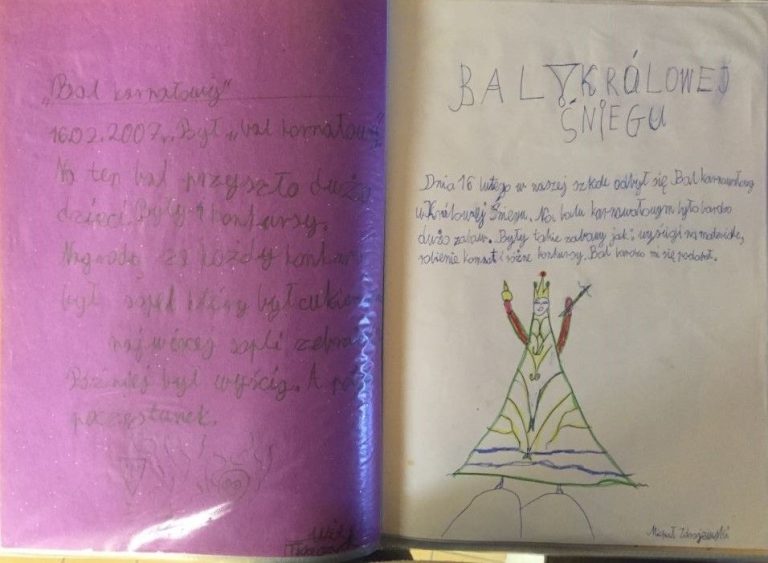 „Bal karnałowy"
16.02.2007r. Był „bal karnałowy"
Na ten bal przyszło dużo
dzieci. Były konkursy.
Nagrodą za każdy konkurs
był sopel który był cukier
najwięcej sopli
Później był wyścig. A
poczęstunek.
BAL U KRÓLOWEJ
ŚNIEGU
Dnia 16 lutego w naszej szkole odbył się Bal karnawałowy
u Królowej Śniegu. Na balu karnawałowym było bardzo
dużo zabaw. Były takie zabawy jak: wyścigi na
robienie i różne konkursy. Bal bardzo mi się podobał.
Michał